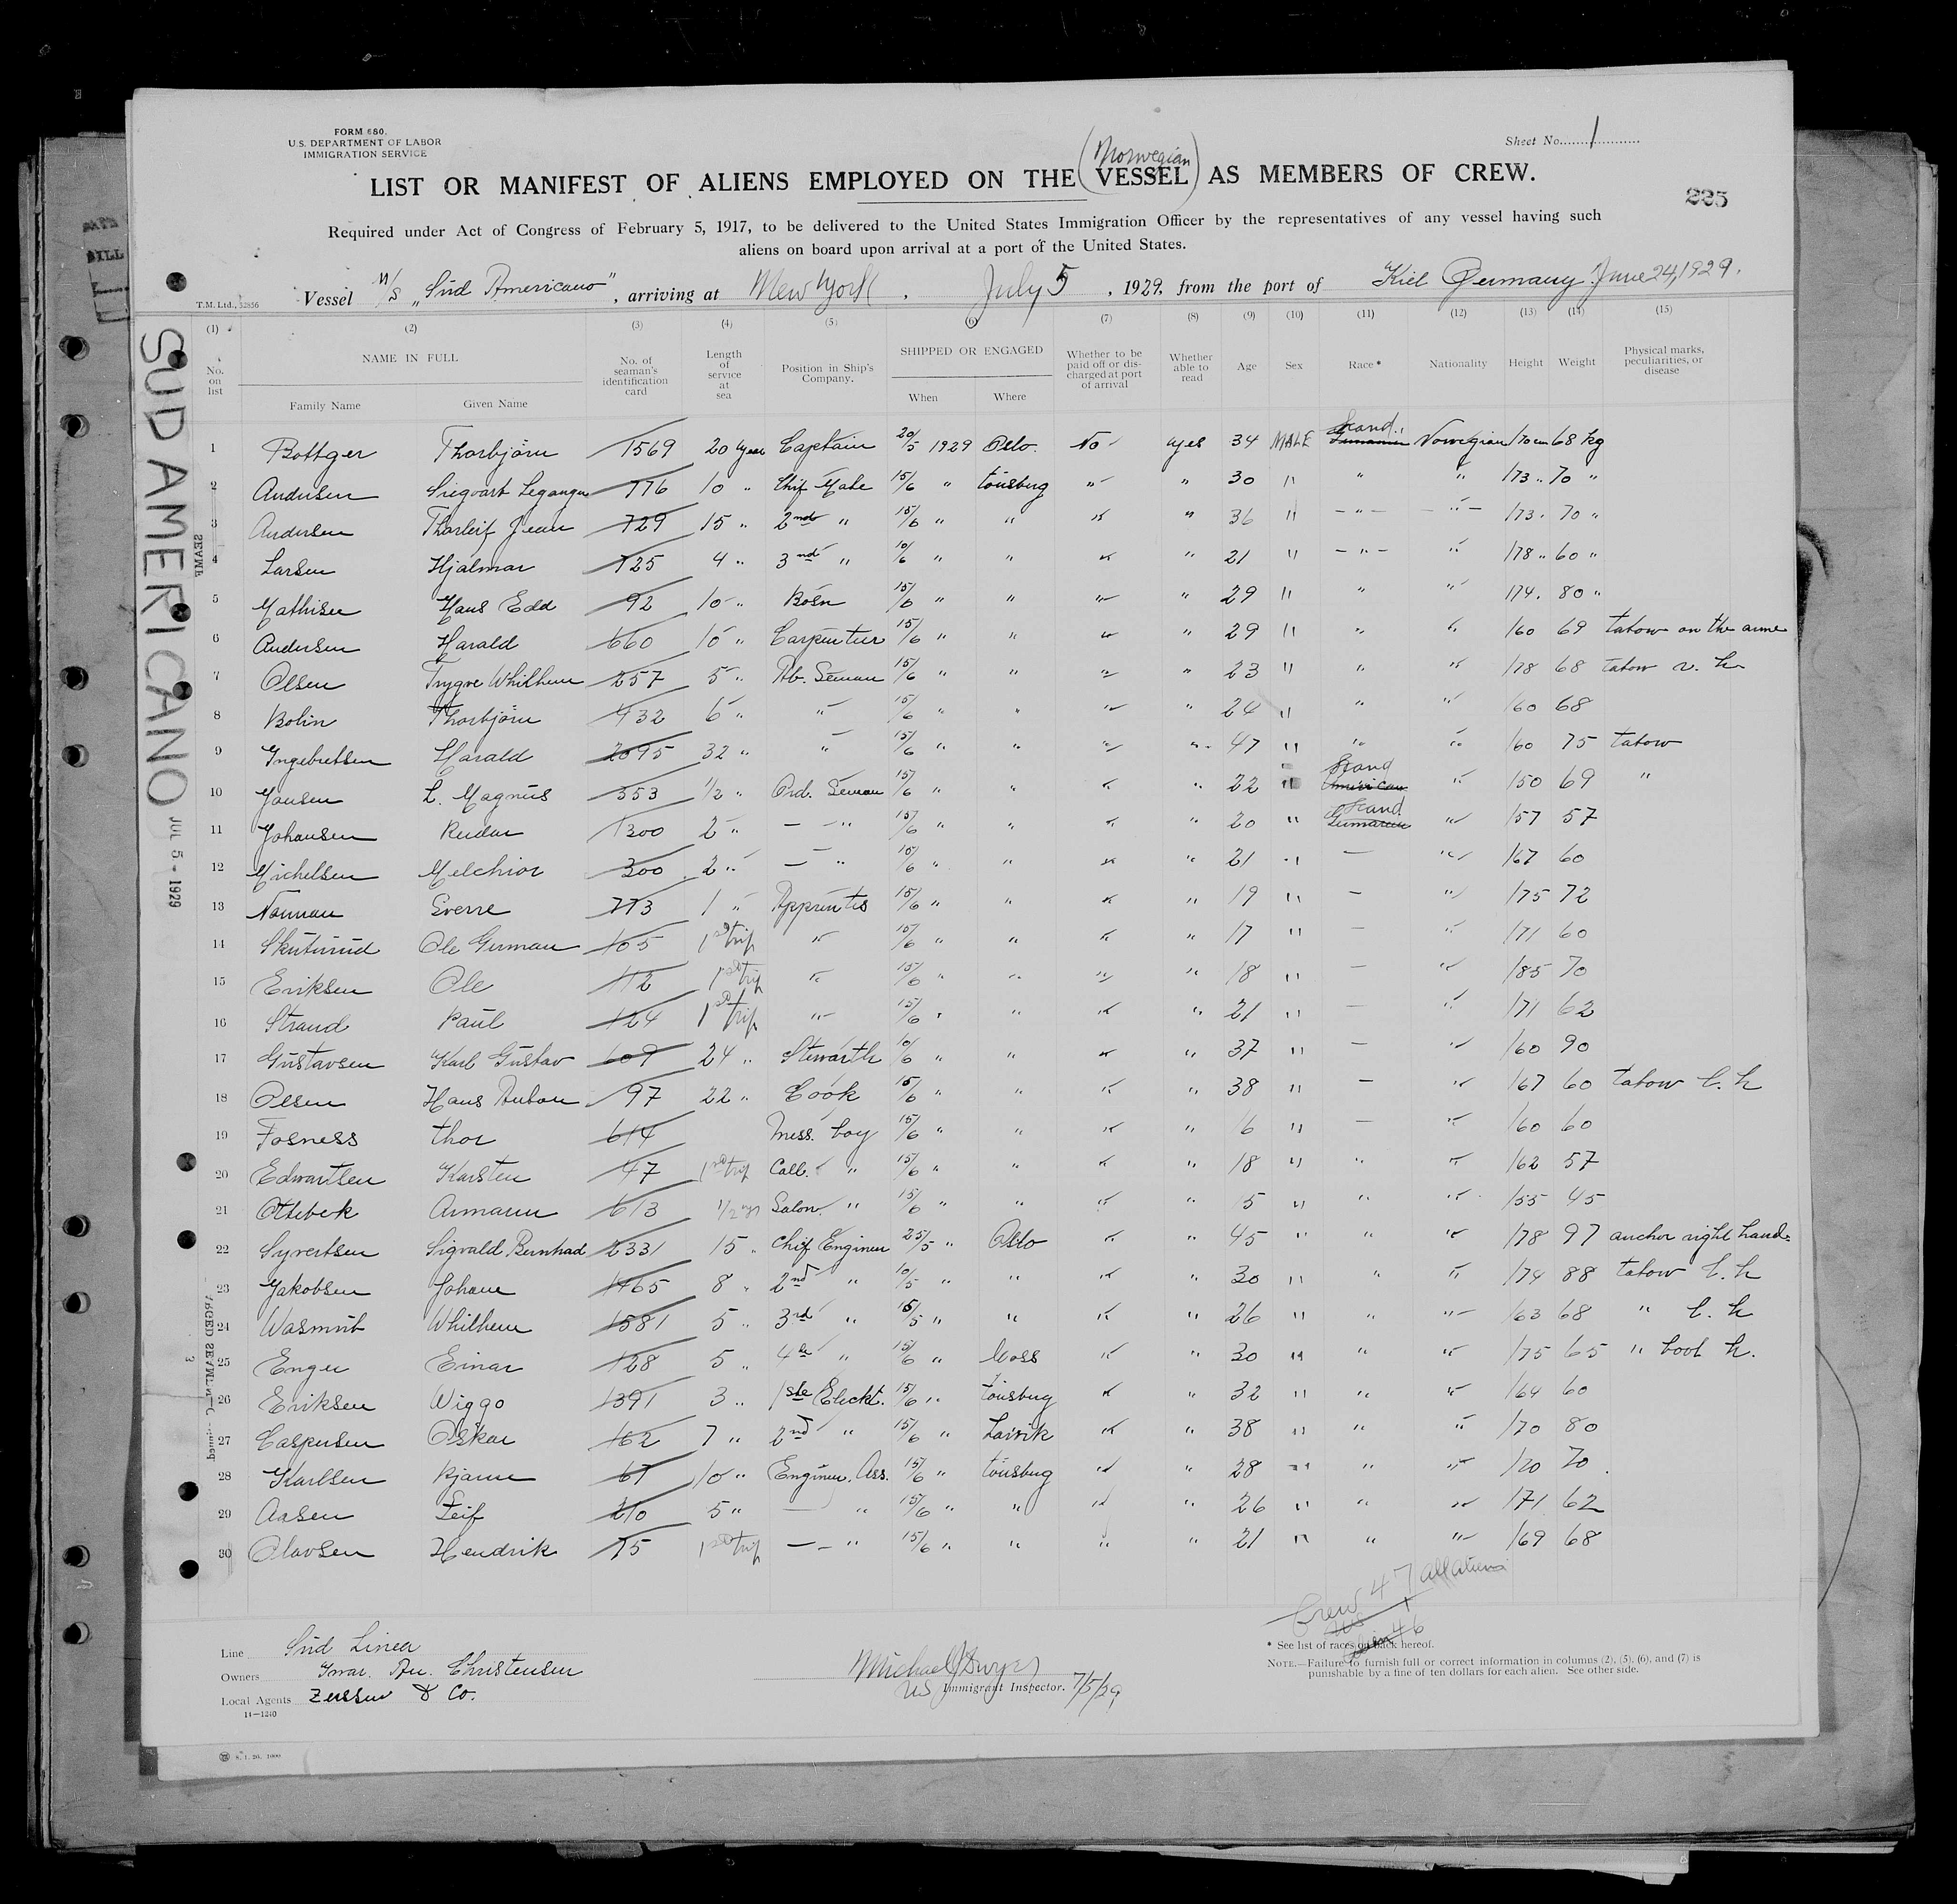 FORM 680.
U.S. DEPARTMENT OF LABOR
IMMIGRATION SERVICE
Sheet No. 1
(Norwegian)
LIST OR MANIFEST OF ALIENS EMPLOYED ON THE VESSEL AS MEMBERS OF CREW.
225
Required under Act of Congress of February 5, 1917, to be delivered to the United States Immigration Officer by the representatives of any vessel having such
aliens on board upon arrival at a port of the United States.
T.M. Ltd., 32856 Vessel M/S „Süd Americano", arriving at New York, July 5, 1929, from the port of Kiel Germany June 24, 1929.
(1) (2) (3) (4) (5) (6) (7) (8) (9) (10) (11) (12) (13) (14) (15)
No. on list NAME IN FULL Family Name Given Name No. of seaman's identification card Length of service at sea Position in Ship's Company. SHIPPED OR ENGAGED When Where Whether to be paid off or discharged at port of arrival Whether able to read Age Sex Race* Nationality Height Weight Physical marks, peculiarities, or disease
1 Bottger Thorbjörn 1569 20 year Captain 20/5 1929 Oslo. No yes 34 MALE Scand. Norwegian 170 cm 68 kg
2 Andersen 776 10 " Chif Mate 15/6 " tönsberg " " 30 " " " 173 " 70 "
3 Andersen Thorleif Jean 729 15 " 2nd " 15/6 " " " " 36 " " " 173 " 70 "
4 Larsen Hjalmar 725 4 " 3nd " 10/6 " " " " 21 " " " 178 " 60 "
5 Mathisen Hans Edd 92 10 " Bosn 15/6 " " " " 29 " " " 174 . 80 "
6 Andersen Harald 660 10 " Carpentier 15/6 " " " " 29 " " " 160 69 tatow on the arme
7 Olsen Trygve Whilhem 257 5 " Ab. Seman 15/6 " " " " 23 " " " 178 68 tatow r. h
8 Bolin Thorbjörn 432 6 " " 15/6 " " " " 24 " " " 160 68
9 Ingebretsen Harald 2095 32 " " 15/6 " " " " 47 " " " 160 75 tatow
10 Jansen L. Magnus 353 1/2 " Ord. Seman 15/6 " " " " 22 " Scand " 150 69 "
11 Johansen Reidar 1300 2 " — " 15/6 " " " " 20 " Scand. " 157 57
12 Michelsen Melchior 300 2 " — " 15/6 " " " " 21 " — " 167 60
13 Norman Sverre 773 1 " Apprentis 15/6 " " " " 19 " — " 175 72
14 Ole German 105 1st trip " 15/6 " " " " 17 " — " 171 60
15 Eriksen Ole 112 1st trip " 15/6 " " " " 18 " — " 185 70
16 Strand Paul 124 1st trip " 15/6 " " " " 21 " — " 171 62
17 Gustavsen Karl Gustav 609 24 " Stewarth 10/6 " " " " 37 " — " 160 90
18 Olsen Hans Anton 97 22 " Cook 15/6 " " " " 38 " — " 167 60 tatow l. h
19 Fosness thor 614 Mess. boy 15/6 " " " " 6 " — " 160 60
20 Edwartsen Karsten 47 1st trip Cab. " 15/6 " " " " 18 " " " 162 57
21 Ottebek Armann 613 1/2 yr Salon. " 15/6 " " " " 5 " " " 155 45
22 Syvertsen Sigvald Bernhad 2331 15 " Chif Enginer 23/5 " Oslo " " 45 " " " 178 97 anchor right hand
23 Jakobsen Johann 1465 8 " 2nd " 10/5 " " " " 30 " " " 174 88 tatow l. h
24 Wasmut Whilhem 1581 5 " 3rd " 15/5 " " " " 26 " " " 163 68 " l. h
25 Enger Einar 128 5 " 4de " 15/6 " Moss " " 30 " " " 175 65 " boot h.
26 Eriksen Wiggo 1391 3 " 1ste Eleckt. 15/6 " tönsberg " " 32 " " " 164 60
27 Caspersen Oskar 162 7 " 2nd " 15/6 " Larvik " " 38 " " " 170 80
28 Karlsen Bjarne 67 10 " Enginer. Ass. 15/6 " tönsberg " " 28 " " " 170 70
29 Aasen Leif 210 5 " — " 15/6 " " " " 26 " " " 171 62
30 Olavsen Hendrik 75 1st trip — " 15/6 " " " " 21 " " " 169 68
SUD AMERICANO JUL 5 - 1929
Crew 47 all aliens
US 1
46
Line Süd Linea
Owners An. Christensen
Local Agents & Co.
14—1240
Michael J Dwyer
US Immigrant Inspector. 7/5/29
* See list of races on back hereof.
NOTE.—Failure to furnish full or correct information in columns (2), (5), (6), and (7) is
punishable by a fine of ten dollars for each alien. See other side.